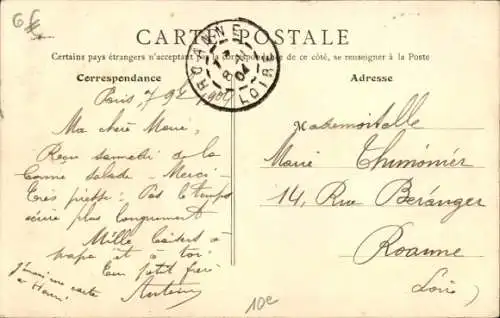 CARTE POSTALE
Certains pays étrangers n'acceptant pas la correspondance de ce côté, se renseigner à la Poste
Correspondance
Adresse
ROANNE
8
04
LOIRE
Paris, 7 9bre 904
Ma chère Marie,
Reçu samedi de la
bonne salade - Merci -
Très pressé : Pas le temps
écrire plus longuement
Mille baisers à
papa et à toi
Ton petit frère
Antoine
J'envoie une carte
à Henri
Mademoiselle
Marie Thimonier
14, Rue Béranger
Roanne
Loire
10e